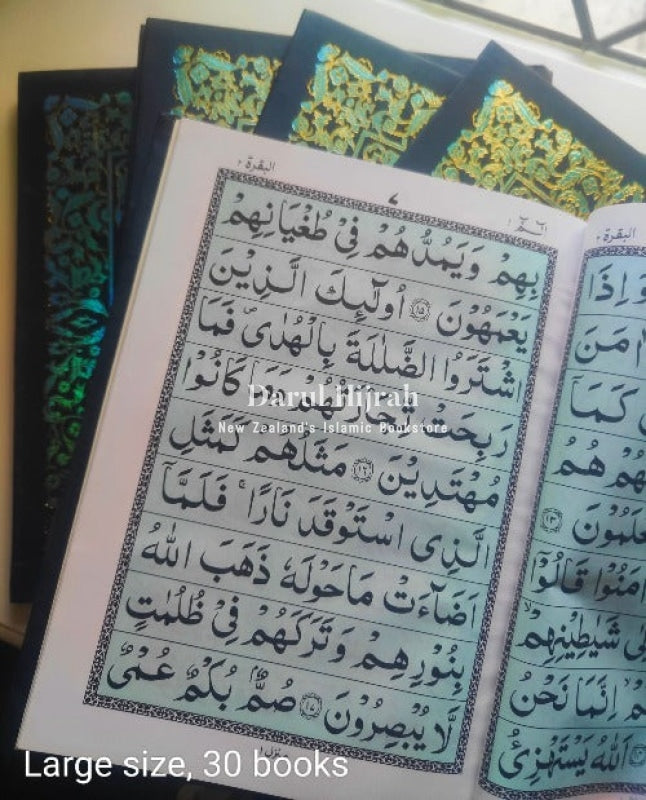 البقرة ٢
٧
الٓمّٓ ١
بِهِمْ وَيَمُدُّهُمْ فِيْ طُغْيَانِهِمْ
يَعْمَهُوْنَ ۝١٥ اُولٰٓئِكَ الَّذِيْنَ
اشْتَرَوُا الضَّلٰلَةَ بِالْهُدٰى فَمَا
رَبِحَتْ تِّجَارَتُهُمْ وَمَا كَانُوْا
مُهْتَدِيْنَ ۝١٦ مَثَلُهُمْ كَمَثَلِ
الَّذِى اسْتَوْقَدَ نَارًا ۚ فَلَمَّآ
اَضَآءَتْ مَاحَوْلَهٗ ذَهَبَ اللّٰهُ
بِنُوْرِهِمْ وَتَرَكَهُمْ فِيْ ظُلُمٰتٍ
لَّا يُبْصِرُوْنَ ۝١٧ صُمٌّۢ بُكْمٌ عُمْىٌ
منزل ١
البقرة ٢
وَاِذَا
مَنَ
كَمَآ
هُمْ
قَالُوْٓا
شَيٰطِيْنِهِمْ ۙ
اِنَّمَا نَحْنُ
اَللّٰهُ يَسْتَهْزِئُ
Darul Hijrah
New Zealand's Islamic Bookstore
Large size, 30 books